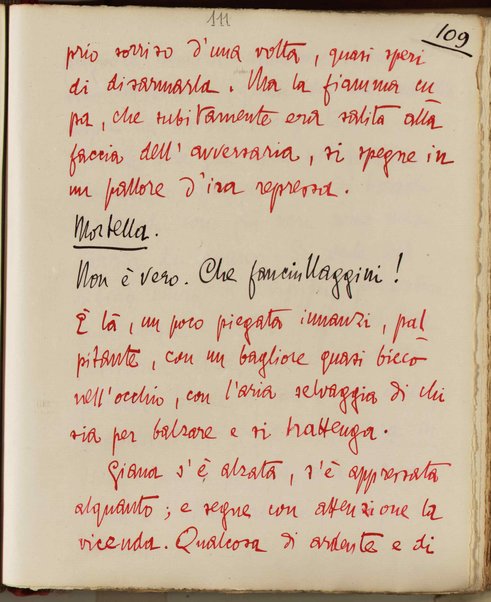 111
109
prio sorriso d'una volta, quasi speri
di disarmarla. Ma la fiamma cu
pa, che subitamente era salita alla
faccia dell'avversaria, si spegne in
un pallore d'ira repressa.
Mortella.
Non è vero. Che fanciullaggini!
È là, un poco piegata innanzi, pal
pitante, con un bagliore quasi bieco
nell'occhio, con l'aria selvaggia di chi
sia per balzare e si trattenga.
Giana s'è alzata, s'è appressata
alquanto; e segue con attenzione la
vicenda. Qualcosa di ardente e di